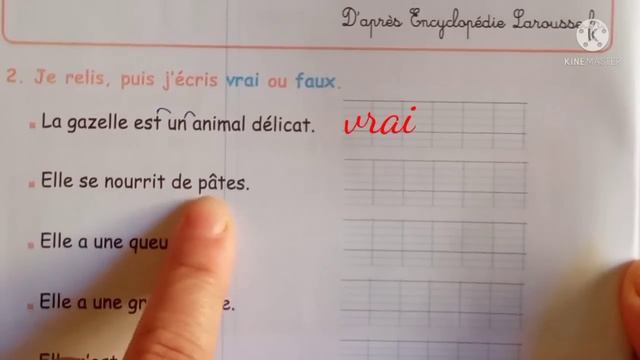 D'après Encyclopédie Larousse
KINEMASTER
2. Je relis, puis j'écris vrai ou faux.
La gazelle est un animal délicat. vrai
Elle se nourrit de pâtes.
Elle a une
Elle a une